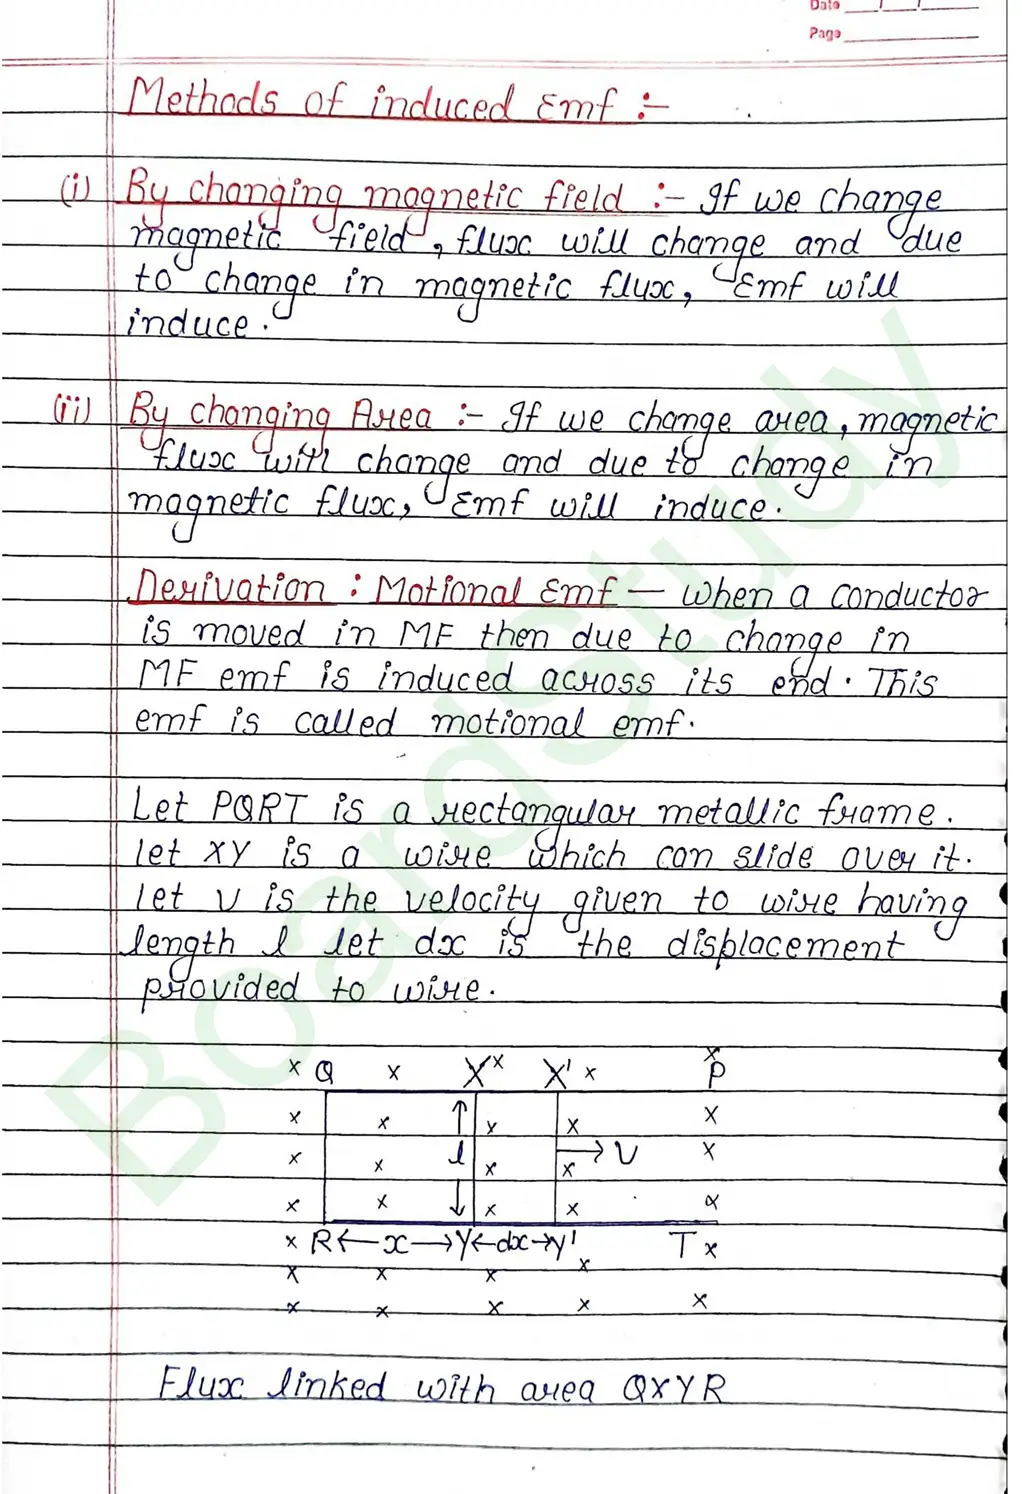 Date
Page
Methods of induced Emf :-
(i) By changing magnetic field :- If we change
magnetic field, flux will change and due
to change in magnetic flux, Emf will
induce.
(ii) By changing Area :- If we change area, magnetic
flux with change and due to change in
magnetic flux, Emf will induce.
Derivation : Motional Emf — when a conductor
is moved in MF then due to change in
MF emf is induced across its end. This
emf is called motional emf.
Let PQRT is a rectangular metallic frame.
let XY is a wire which can slide over it.
let v is the velocity given to wire having
length l let dx is the displacement
provided to wire.
x Q x X x X' x x P
x x x x x
l → v
x x x x x
x x x x x
x R ← x → Y ← dx → Y' x T x
x x x
x x x x x
Flux linked with area QXYR
BoardStudy